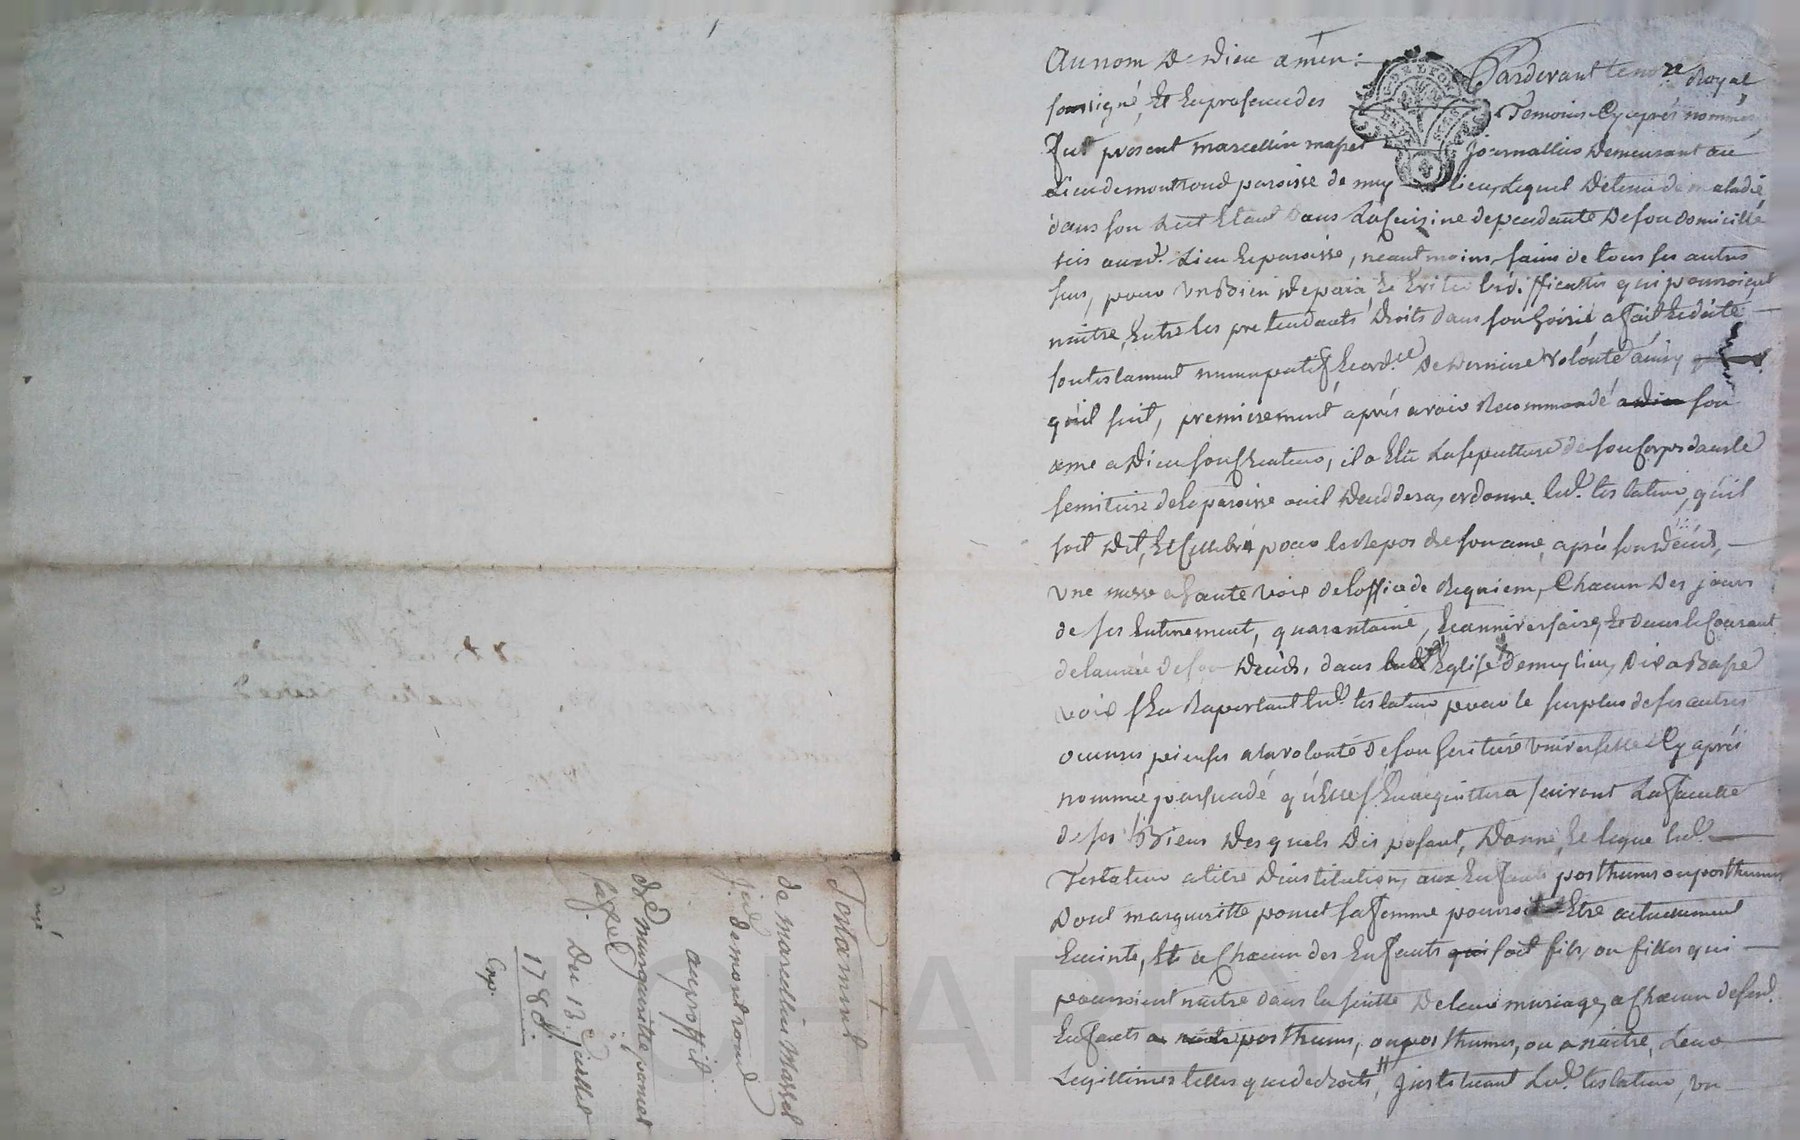 Au nom De Dieu amen: Pardevant le no.re Royal
soussigné, Et En presence des Temoins Cy après nommés
fut present marcellin masset journallier Demeurant au
Lieu de montrond paroisse de my lieu, Lequel Détenu de maladie
dans son Lict Etant Dans La Cuizine dependante De son domicille
sis aud.t Lieu Et paroisse, neant moins sains de tous ses autres
sens, pour un Bien De paix, Et Eviter les difficultés qui pourroient
naitre, Entre les pretendants Droits dans son hoirie a fait Et dicté
son testament nuncupatif Et ord.ce De Derniere volonté ainsy
qu'il suit, premierement après avoir Recommandé a dieu son
ame a Dieu son Createur, il a Elu La sepulture de son Corps dans le
semitiere de la paroisse ou il Deceddera, ordonne led. testateur, qu'il
soit Dit, Et Cellebré pour le Repos de son ame, après son Décès,
une messe a haute voix de l'office de Requiem, Chacun Des jours
de ses Enterrement, quarantaine, Et anniversaire, Et dans le Courant
de l'année de son Décès, dans lad. Eglise de my lieu, Dix a Basse
voix s'En Raportant led. testateur pour le surplus de ses autres
oeuvres pieuses a la volonté De son heritiere universelle Cy après
nommée persuadé qu'Elle s'En acquittera suivant La faculté
de ses Biens Desquels Disposant, Donne, Et legue led.
Testateur a titre D'institution, aux Enfants posthumes ou posthumes
Dont margueritte pomet sa femme pourroit Etre actuellement
Enceinte, Et a Chacun des Enfants qui soit fils, ou filles qui
pourroient naitre dans la suitte De leur mariage, a Chacun desd.
Enfants posthumes, ou posthumes, ou a naitre, Leur
Legittimes telles que de droits, Instituant Led. testateur, un
Testament
de marcellin Massel
j.er de montrond
au proffit
de marguerite pomet
sa f.e
Du 13.e Juillet
1788.
Exp.
Pascal CHAREYRON